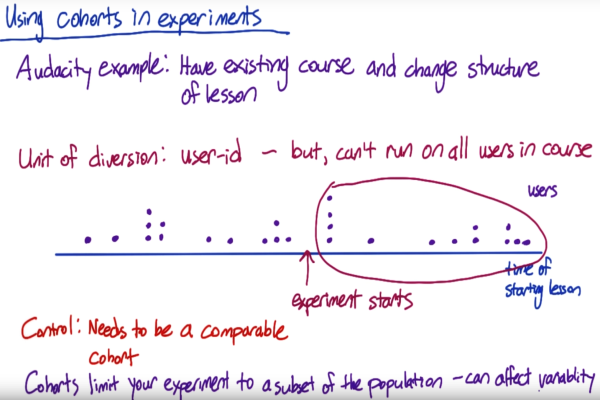 Using cohorts in experiments
Audacity example: Have existing course and change structure
of lesson
Unit of diversion: user-id - but, can't run on all users in course
users
experiment starts
time of
starting lesson
Control: Needs to be a comparable
cohort
Cohorts limit your experiment to a subset of the population - can affect variablity